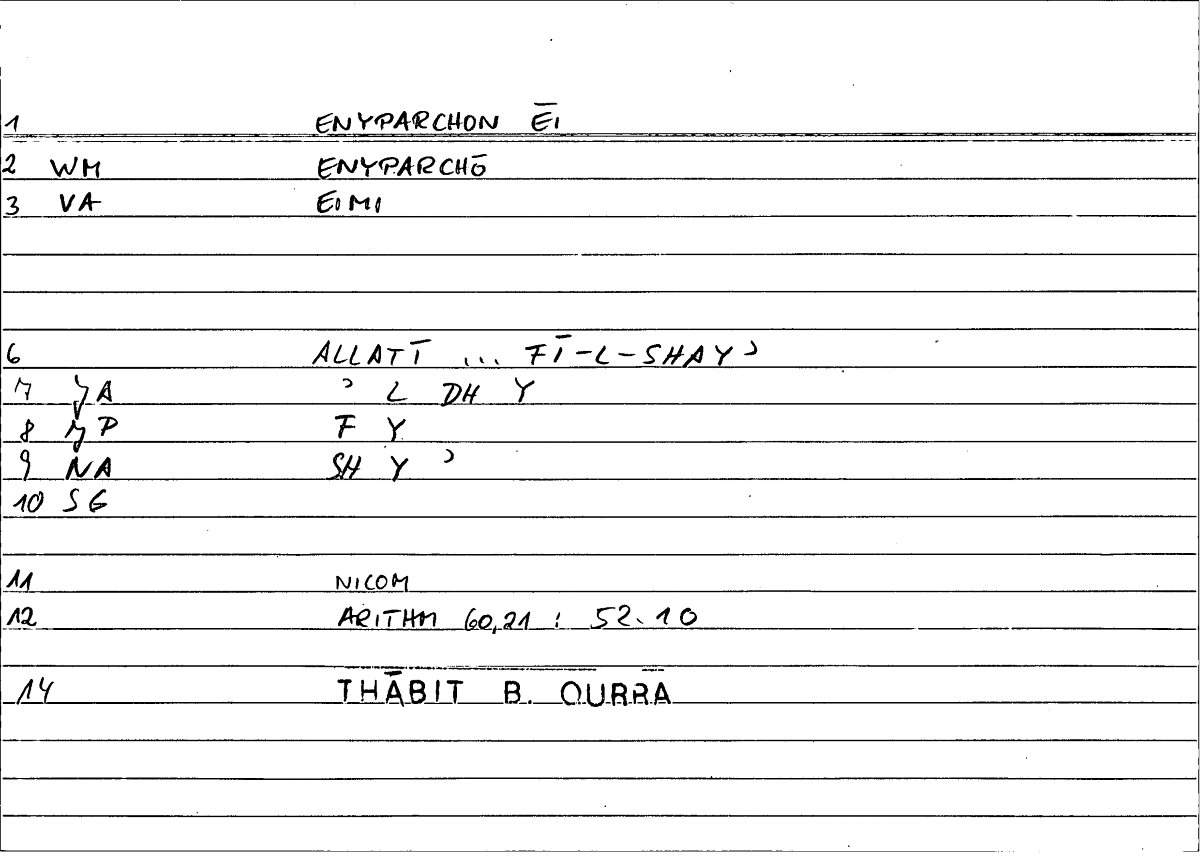 1 ENYPARCHON ĒI
2 WM ENYPARCHŌ
3 VA EIMI
6 ALLATĪ ... FĪ-L-SHAYʾ
7 JA ʾ L DH Y
8 JP F Y
9 NA SH Y ʾ
10 SG
11 NICOM
12 ARITHM 60,21 : 52.10
14 THĀBIT B. QURRA